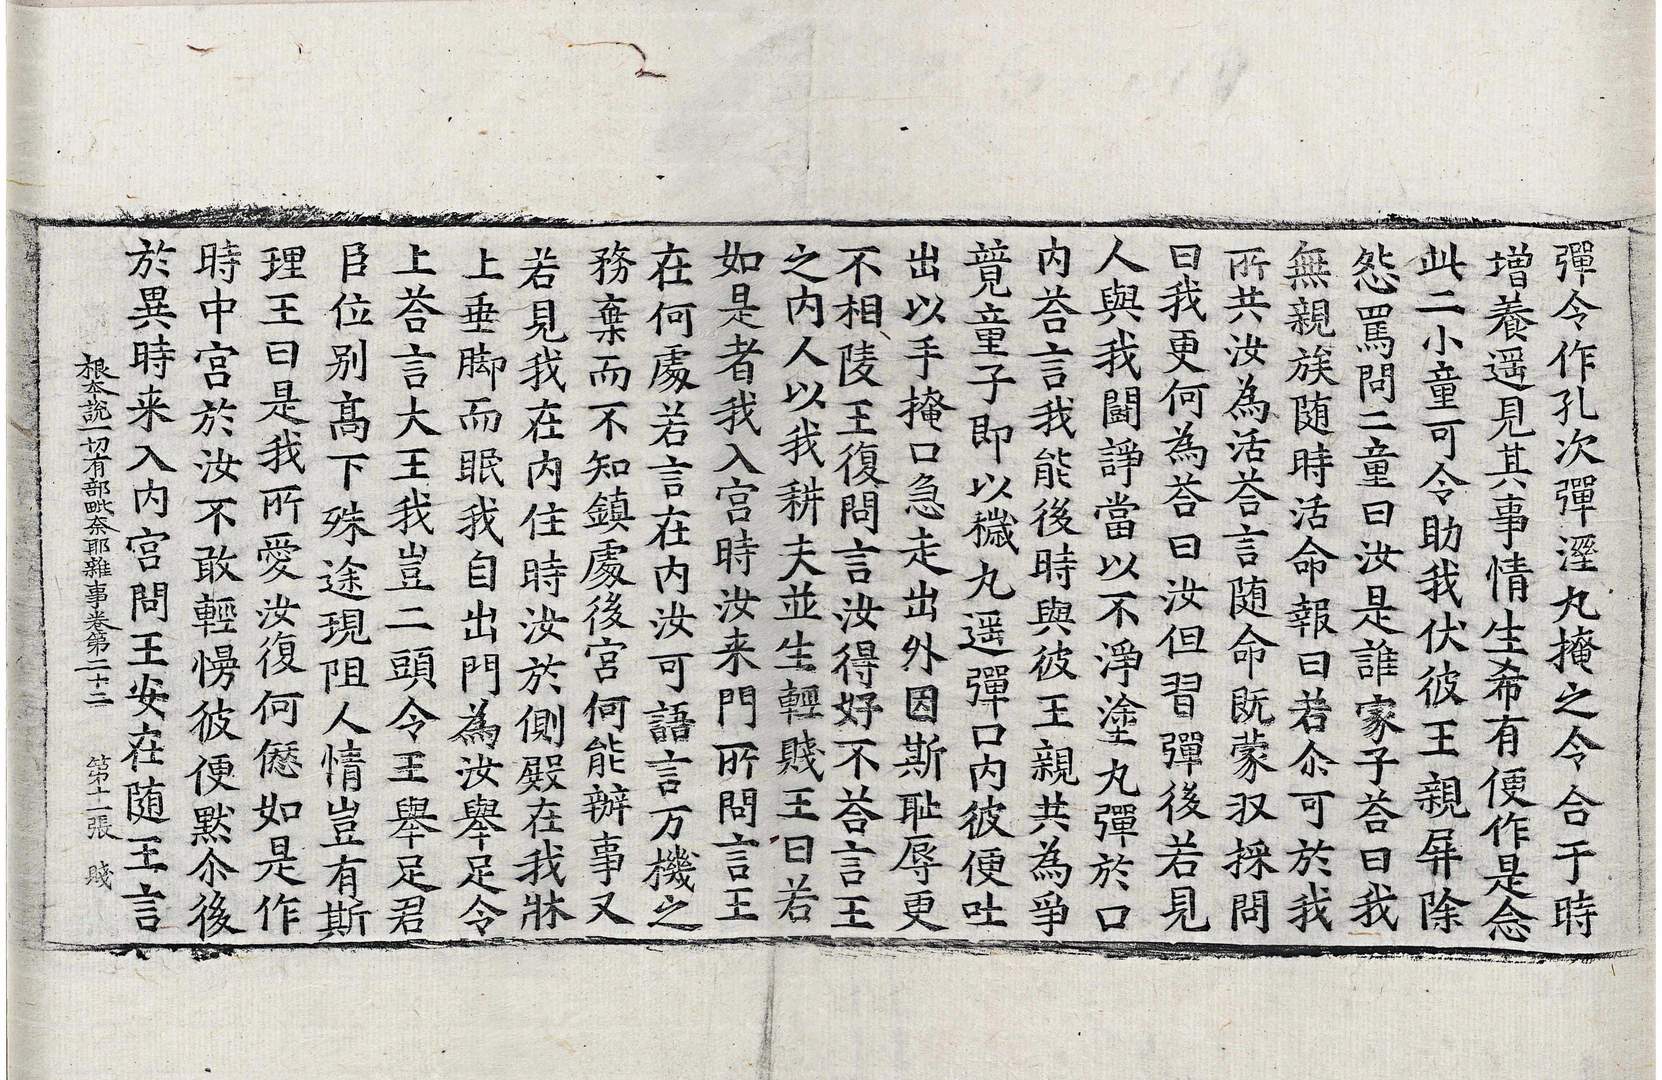 彈令作孔次彈溼丸掩之令合于時
增養遥見其事情生希有便作是念
此二小童可令助我伏彼王親屏除
怨罵問二童曰汝是誰家子荅曰我
無親族随時活命報曰若尒可於我
所共汝為活荅言随命既蒙収採問
曰我更何為荅曰汝但習彈後若見
人與我鬪諍當以不淨塗丸彈於口
内荅言我能後時與彼王親共為爭
競童子即以穢丸遥彈口内彼便吐
出以手掩口急走出外因斯恥辱更
不相陵王復問言汝得好不荅言王
之内人以我耕夫並生輕賤王曰若
如是者我入宫時汝来門所問言王
在何處若言在内汝可語言万機之
務棄而不知鎮處後宫何能辦事又
若見我在内住時汝於側殿在我牀
上垂脚而眠我自出門為汝舉足令
上荅言大王我豈二頭令王舉足君
臣位别髙下殊途現阻人情豈有斯
理王曰是我所愛汝復何僁如是作
時中宫於汝不敢輕慢彼便黙尒後
於異時来入内宫問王安在随王言
根本說一切有部毗奈耶雜事卷第二十二　第十一張　賤